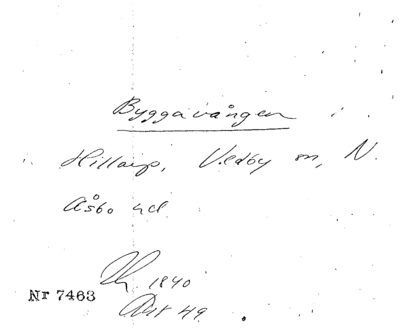 Byggavången
i Hillarp, Vedby sn, N.
Åsbo hd.
1840
Nr 7463
Akt 49